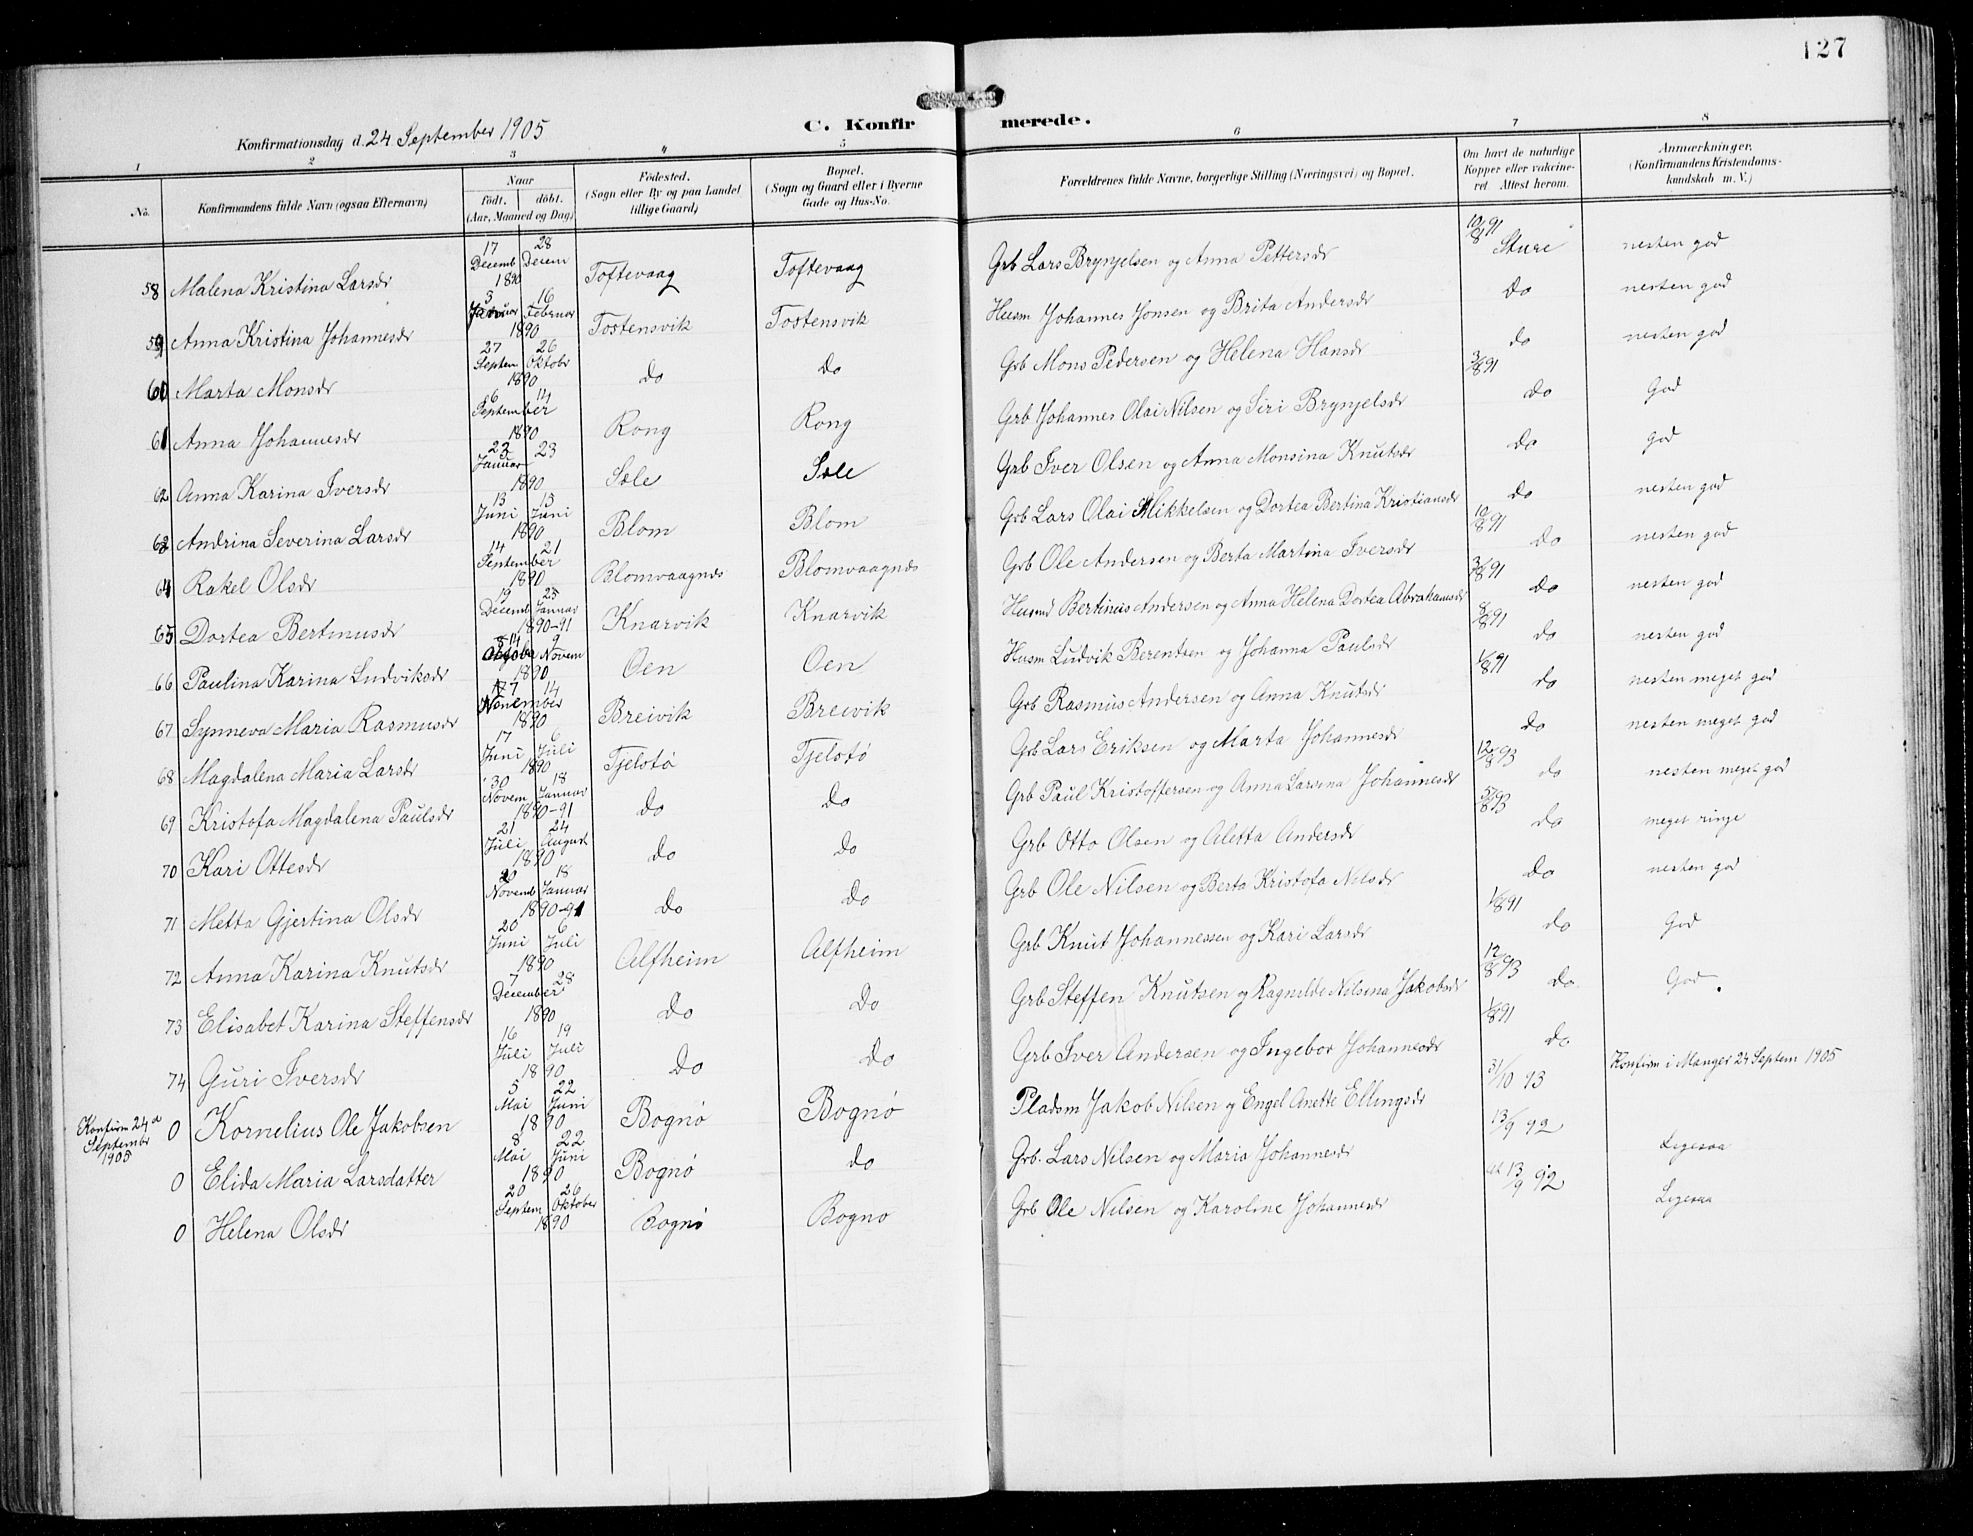 127
Konfirmationsdag d. 24 September 1905
C. Konfirmerede.
1 2 3 4 5 6 7 8
No. Konfirmandens fulde Navn (ogsaa Efternavn) Naar födt. döbt. (Aar, Maaned og Dag) Födested. (Sogn eller By og paa Landet tillige Gaard) Bopæl. (Sogn og Gaard eller i Byerne Gade og Hus-No. Forældrenes fulde Navne, borgerlige Stilling (Næringsvei) og Bopæl. Om havt de naturlige Kopper eller vakcineret. Attest herom. Anmærkninger. (Konfirmandens Kristendomskundskab m. V.)
58 Malena Kristina Larsdr 17 Decemb 28 Decem 1890 Toftevaag Toftevaag Grb Lars Brynjelsen og Anna Pettersdr 10/8 91 Sture nesten god
59 Anna Kristina Johannesdr 3 Januar 16 Februar 1890 Tostensvik Tostensvik Husm Johannes Jonsen og Brita Andersdr do nesten god
60 Marta Monsdr 27 Septem 26 Oktobr 1890 do do Grb Mons Pedersen og Helena Hansdr do nesten god
61 Anna Johannesdr 6 14 September 1890 Rong Rong Grb Johannes Olai Nilsen og Siri Brynjelsdr 3/8 91 do God
62 Anna Karina Iversdr 23 23 Januar 1890 Sæle Sæle Grb Iver Olsen og Anna Monsina Knutsdr do God
63 Andrina Severina Larsdr 13 Juni 13 Juni 1890 Blom Blom Grb Lars Olai Mikkelsen og Dortea Bertina Kristiansdr do nesten god
64 Rakel Olsdr 14 21 September 1890 Blomvaagnes Blomvaagnes Grb Ole Andersen og Berta Martina Iversdr 10/8 91 do nesten god
65 Dortea Bertinusdr 19 Decemb 25 Januar 1890-91 Knarvik Knarvik Husmd Bertinus Andersen og Anna Helena Dortea Abrahamsdr 3/8 91 do nesten god
66 Paulina Karina Ludviksdr 14 9 Novem 1890 Oen Oen Husm Ludvik Berentsen og Johanna Paulsdr 8/8 91 do nesten god
67 Synneva Maria Rasmusdr 7 14 November 1890 Breivik Breivik Grb Rasmus Andersen og Anna Knutsdr 1/8 91 do nesten meget god
68 Magdalena Maria Larsdr 17 Juni 6 Juli 1890 Tjelstø Tjelstø Grb Lars Eriksen og Marta Johannesdr do nesten meget god
69 Kristofa Magdalena Paulsdr 30 Novem 18 Januar 1890-91 do do Grb Paul Kristoffersen og Anna Larsina Johannesdr 12/8 93 do nesten meget god
70 Kari Ottesdr 21 Juli 24 August 1890 do do Grb Otto Olsen og Aletta Andersdr do meget ringe
71 Metta Gjertina Olsdr Novemb 18 Januar 1890-91 do do Grb Ole Nilsen og Berta Kristofa Nilsdr do nesten god
72 Anna Karina Knutsdr 20 Juni 6 Juli 1890 Alfheim Alfheim Grb Knut Johannessen og Kari Larsdr 1/8 91 do God
73 Elisabet Karina Steffensdr 7 28 December 1890 do do Grb Steffen Knutsen og Ragnilde Nilsina Jakobsdr 12/8 93 do God
74 Guri Iversdr 16 Juli 19 Juli 1890 do do Grb Iver Andersen og Ingebor Johannesdr 1/8 91 do
Konfirm 24de Septembr 1905 0 Kornelius Ole Jakobsen 5 Mai 22 Juni 1890 Bognø Bognø Pladsm Jakob Nilsen og Engel Anette Ellingsdr 31/10 93 Konfirm i Manger 24 Septem 1905
0 Elida Maria Larsdatter 8 Mai 22 Juni 1890 Bognø do Grb. Lars Nilsen og Maria Johannesdr 13/9 92 Ligesaa
0 Helena Olsdr 20 Septem 26 Oktober 1890 Bognø Bognø Grb Ole Nilsen og Karoline Johannesdr 13/9 92 Ligesaa